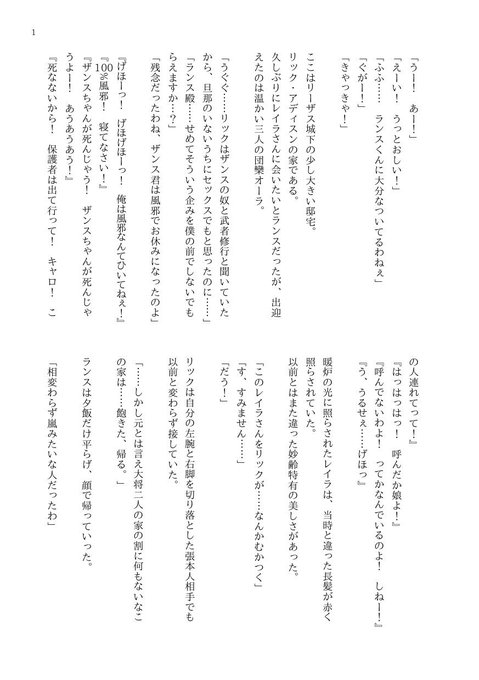 1
「うー！　あー！」
「えーい！　うっとおしい！」
「ふふ……　ランスくんに大分なついてるわねぇ」
「ぐがー！」
「きゃっきゃ！」
ここはリーザス城下の少し大きい邸宅。
リック・アディスンの家である。
久しぶりにレイラさんに会いたいとランスだったが、出迎
えたのは温かい三人の団欒オーラ。
「うぐぐ……リックはザンスの奴と武者修行と聞いていた
から、旦那のいないうちにセックスでもと思ったのに……」
「ランス殿……せめてそういう企みを僕の前でしないでも
らえますか…？」
「残念だったわね、ザンス君は風邪でお休みになったのよ」
『げほーっ！　げほげほーっ！　俺は風邪なんてひいてねぇ！』
『100%風邪！　寝てなさい！』
『ザンスちゃんが死んじゃう！　ザンスちゃんが死んじゃ
うよー！　あうあうあう！』
『死なないから！　保護者は出て行って！　キャロ！　こ
の人連れてって！』
『はっはっはっ！　呼んだか娘よ！』
『呼んでないわよ！　ってかなんでいるのよ！　しねー！』
『う、うるせぇ……げほっ』
暖炉の光に照らされたレイラは、当時と違った長髪が赤く
照らされていた。
以前とはまた違った妙齢特有の美しさがあった。
「このレイラさんをリックが……なんかむかつく」
「す、すみません……」
「だう！」
リックは自分の左腕と右脚を切り落とした張本人相手でも
以前と変わらず接していた。
「……しかし元とは言え大将二人の家の割に何もないなこ
の家は……飽きた、帰る。」
ランスは夕飯だけ平らげ、顔で帰っていった。
「相変わらず嵐みたいな人だったわ」